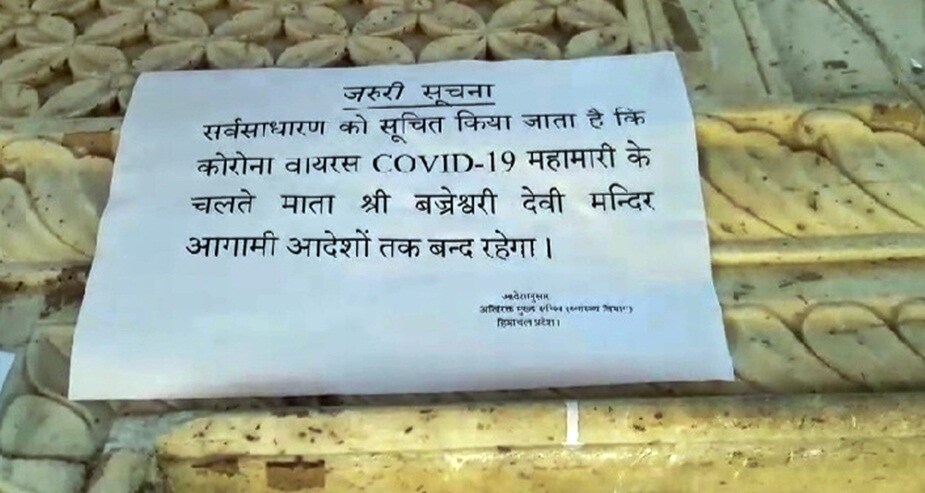 जरुरी सूचना
सर्वसाधारण को सूचित किया जाता है कि
कोरोना वायरस COVID-19 महामारी के
चलते माता श्री बज्रेश्वरी देवी मन्दिर
आगामी आदेशों तक बन्द रहेगा।
आदेशानुसार
अतिरिक्त मुख्य सचिव (स्वास्थ्य विभाग)
हिमाचल प्रदेश।